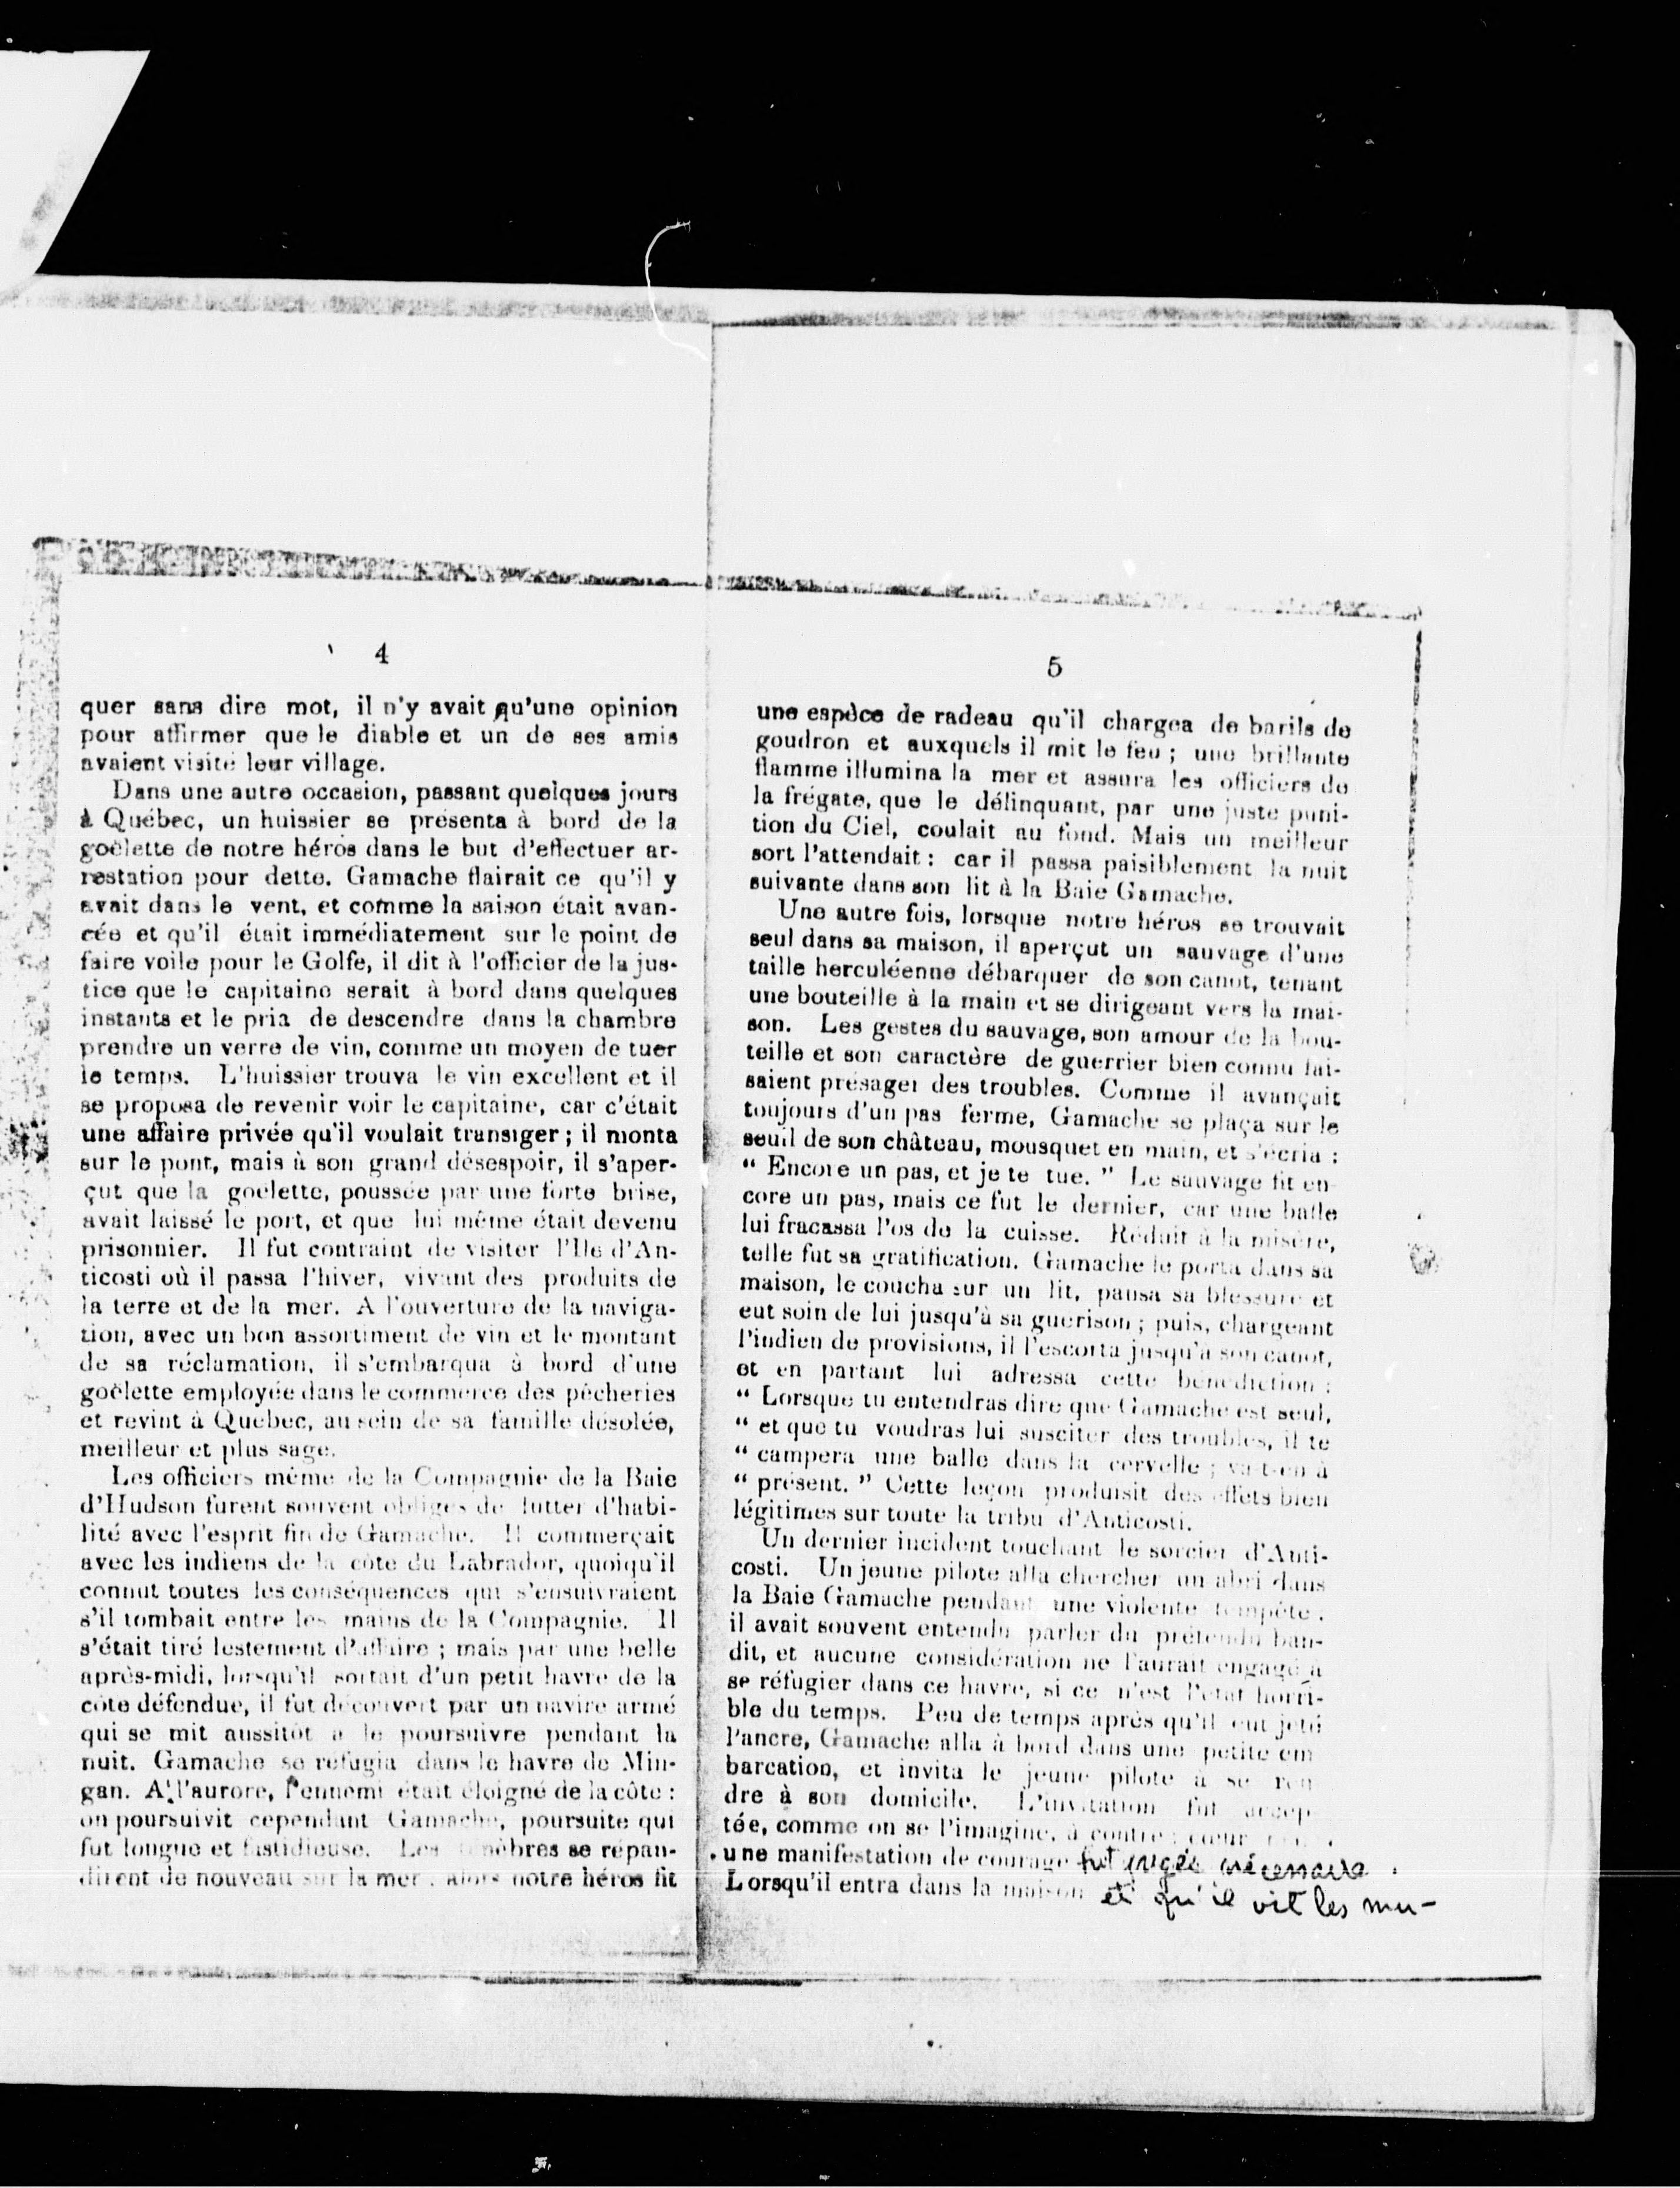 4
quer sans dire mot, il n'y avait qu'une opinion
pour affirmer que le diable et un de ses amis
avaient visité leur village.
Dans une autre occasion, passant quelques jours
à Québec, un huissier se présenta à bord de la
goëlette de notre héros dans le but d'effectuer ar-
restation pour dette. Gamache flairait ce qu'il y
avait dans le vent, et comme la saison était avan-
cée et qu'il était immédiatement sur le point de
faire voile pour le Golfe, il dit à l'officier de la jus-
tice que le capitaine serait à bord dans quelques
instants et le pria de descendre dans la chambre
prendre un verre de vin, comme un moyen de tuer
le temps. L'huissier trouva le vin excellent et il
se proposa de revenir voir le capitaine, car c'était
une affaire privée qu'il voulait transiger ; il monta
sur le pont, mais à son grand désespoir, il s'aper-
çut que la goëlette, poussée par une forte brise,
avait laissé le port, et que lui même était devenu
prisonnier. Il fut contraint de visiter l'Ile d'An-
ticosti où il passa l'hiver, vivant des produits de
la terre et de la mer. A l'ouverture de la naviga-
tion, avec un bon assortiment de vin et le montant
de sa réclamation, il s'embarqua à bord d'une
goëlette employée dans le commerce des pêcheries
et revint à Québec, au sein de sa famille désolée,
meilleur et plus sage.
Les officiers même de la Compagnie de la Baie
d'Hudson furent souvent obligés de lutter d'habi-
lité avec l'esprit fin de Gamache. Il commerçait
avec les indiens de la côte du Labrador, quoiqu'il
connut toutes les conséquences qui s'ensuivraient
s'il tombait entre les mains de la Compagnie. Il
s'était tiré lestement d'affaire ; mais par une belle
après-midi, lorsqu'il sortait d'un petit havre de la
côte défendue, il fut découvert par un navire armé
qui se mit aussitôt à le poursuivre pendant la
nuit. Gamache se réfugia dans le havre de Min-
gan. A l'aurore, l'ennemi était éloigné de la côte :
on poursuivit cependant Gamache, poursuite qui
fut longue et fastidieuse. Les ténèbres se répan-
dirent de nouveau sur la mer. Alors notre héros fit
5
une espèce de radeau qu'il chargea de barils de
goudron et auxquels il mit le feu ; une brillante
flamme illumina la mer et assura les officiers de
la frégate, que le délinquant, par une juste puni-
tion du Ciel, coulait au fond. Mais un meilleur
sort l'attendait : car il passa paisiblement la nuit
suivante dans son lit à la Baie Gamache.
Une autre fois, lorsque notre héros se trouvait
seul dans sa maison, il aperçut un sauvage d'une
taille herculéenne débarquer de son canot, tenant
une bouteille à la main et se dirigeant vers la mai-
son. Les gestes du sauvage, son amour de la bou-
teille et son caractère de guerrier bien connu fai-
saient présager des troubles. Comme il avançait
toujours d'un pas ferme, Gamache se plaça sur le
seuil de son château, mousquet en main, et s'écria :
“ Encore un pas, et je te tue. ” Le sauvage fit en-
core un pas, mais ce fut le dernier, car une balle
lui fracassa l'os de la cuisse. Réduit à la misère,
telle fut sa gratification. Gamache le porta dans sa
maison, le coucha sur un lit, pansa sa blessure et
eut soin de lui jusqu'à sa guérison ; puis, chargeant
l'indien de provisions, il l'escorta jusqu'à son canot,
et en partant lui adressa cette bénédiction :
“ Lorsque tu entendras dire que Gamache est seul,
“ et que tu voudras lui susciter des troubles, il te
“ campera une balle dans la cervelle ; va-t-en à
“ présent. ” Cette leçon produisit des effets bien
légitimes sur toute la tribu d'Anticosti.
Un dernier incident touchant le sorcier d'Anti-
costi. Un jeune pilote alla chercher un abri dans
la Baie Gamache pendant une violente tempête ;
il avait souvent entendu parler du prétendu ban-
dit, et aucune considération ne l'aurait engagé à
se réfugier dans ce havre, si ce n'est l'état horri-
ble du temps. Peu de temps après qu'il eut jeté
l'ancre, Gamache alla à bord dans une petite em
barcation, et invita le jeune pilote à se ren
dre à son domicile. L'invitation fut accep
tée, comme on se l'imagine, à contre cœur
une manifestation de courage fut jugée nécessaire.
Lorsqu'il entra dans la maison et qu'il vit les mu-